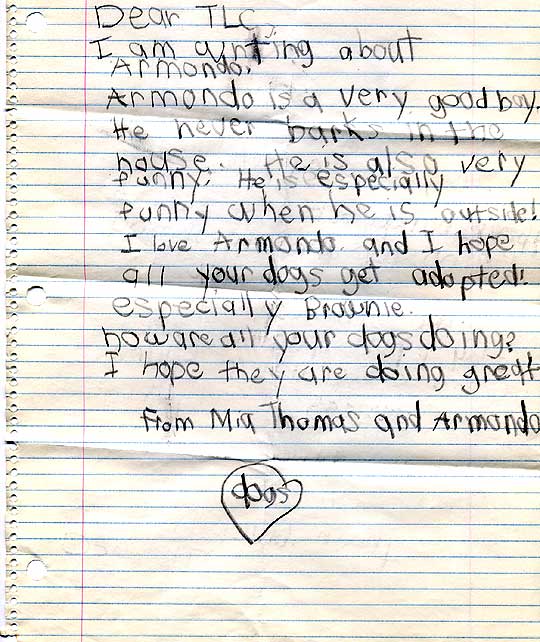 Dear TLC,
I am writing about
Armondo.
Armondo is a very good boy.
He never barks in the
house. He is also very
funny. He is especially
funny when he is outside!
I love Armondo. and I hope
all your dogs get adopted!
especially Brownie.
how are all your dogs doing?
I hope they are doing great
From Mia Thomas and Armondo
dogs